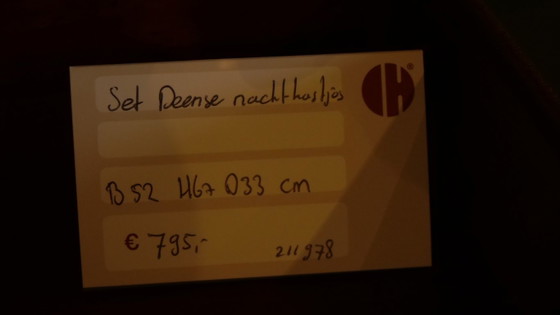 Set Deense nachtkastjes
IH®
B52 H67 D33 cm
€ 795,-
211978